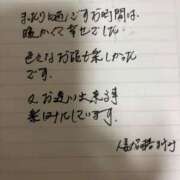 まったり過ごすお時間は
暖かくて幸せでした
色々なお話も楽しかった
です。
又、お逢い出来る事
楽しみにしています。